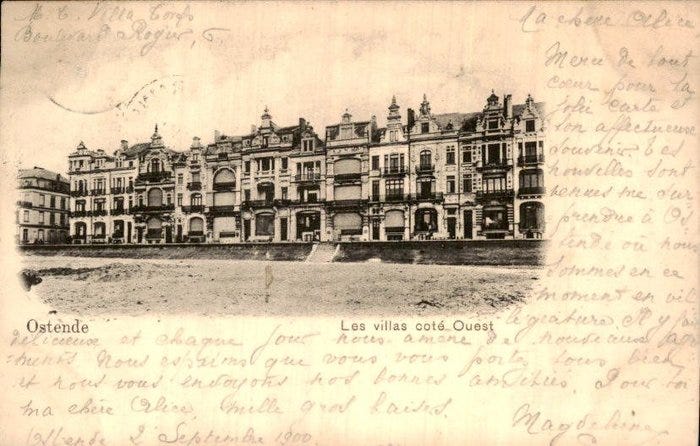 M. C. Villa Torps
Boulevard Rogier, 6
Ma chère Alice
Merci de tout
cœur pour ta
jolie carte et
ton affectueux
souvenir. Tes
nouvelles sont
venues me sur
prendre à Os
tende où nous
sommes en ce
moment en vil
légiature. Il y fait
Ostende
Les villas coté Ouest
délicieux et chaque jour nous amène de nouveaux agré
ments. Nous espérons que vous vous portez tous bien
et nous vous envoyons nos bonnes amitiés. Pour toi
ma chère Alice, mille gros baisers.
Magdeleine
Ostende 2 Septembre 1900